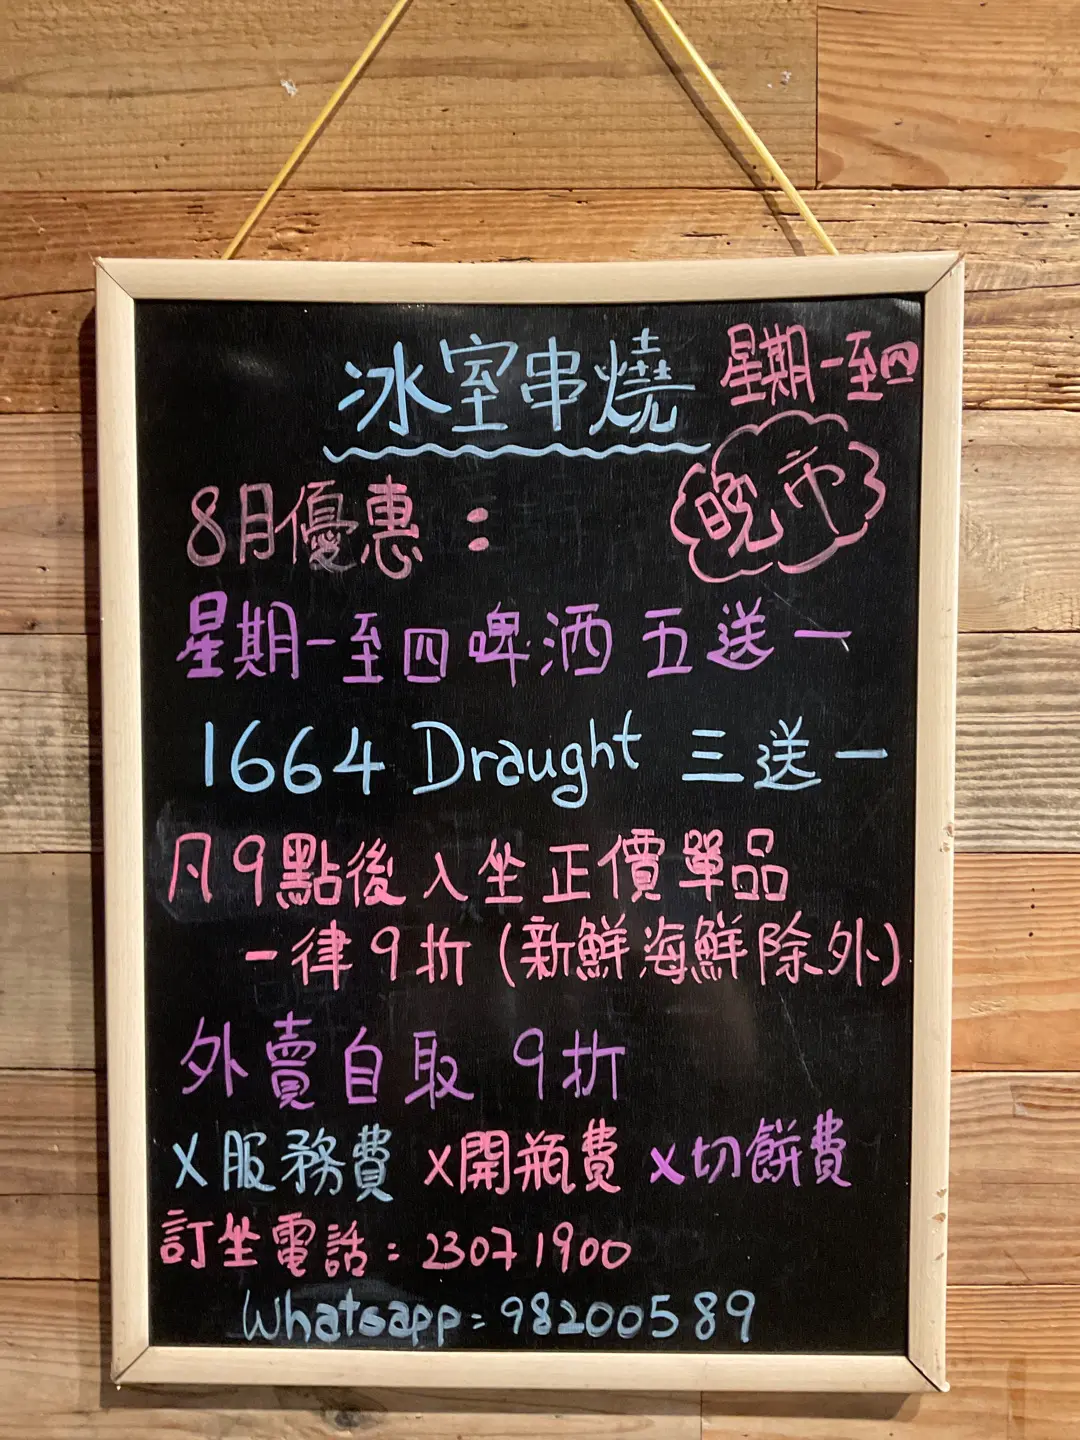 冰室串燒
星期一至四
晚市
8月優惠：
星期一至四啤酒 五送一
1664 Draught 三送一
凡9點後入坐正價單品
一律9折(新鮮海鮮除外)
外賣自取 9折
X服務費 X開瓶費 X切餅費
訂坐電話：23071900
Whatsapp：98200589